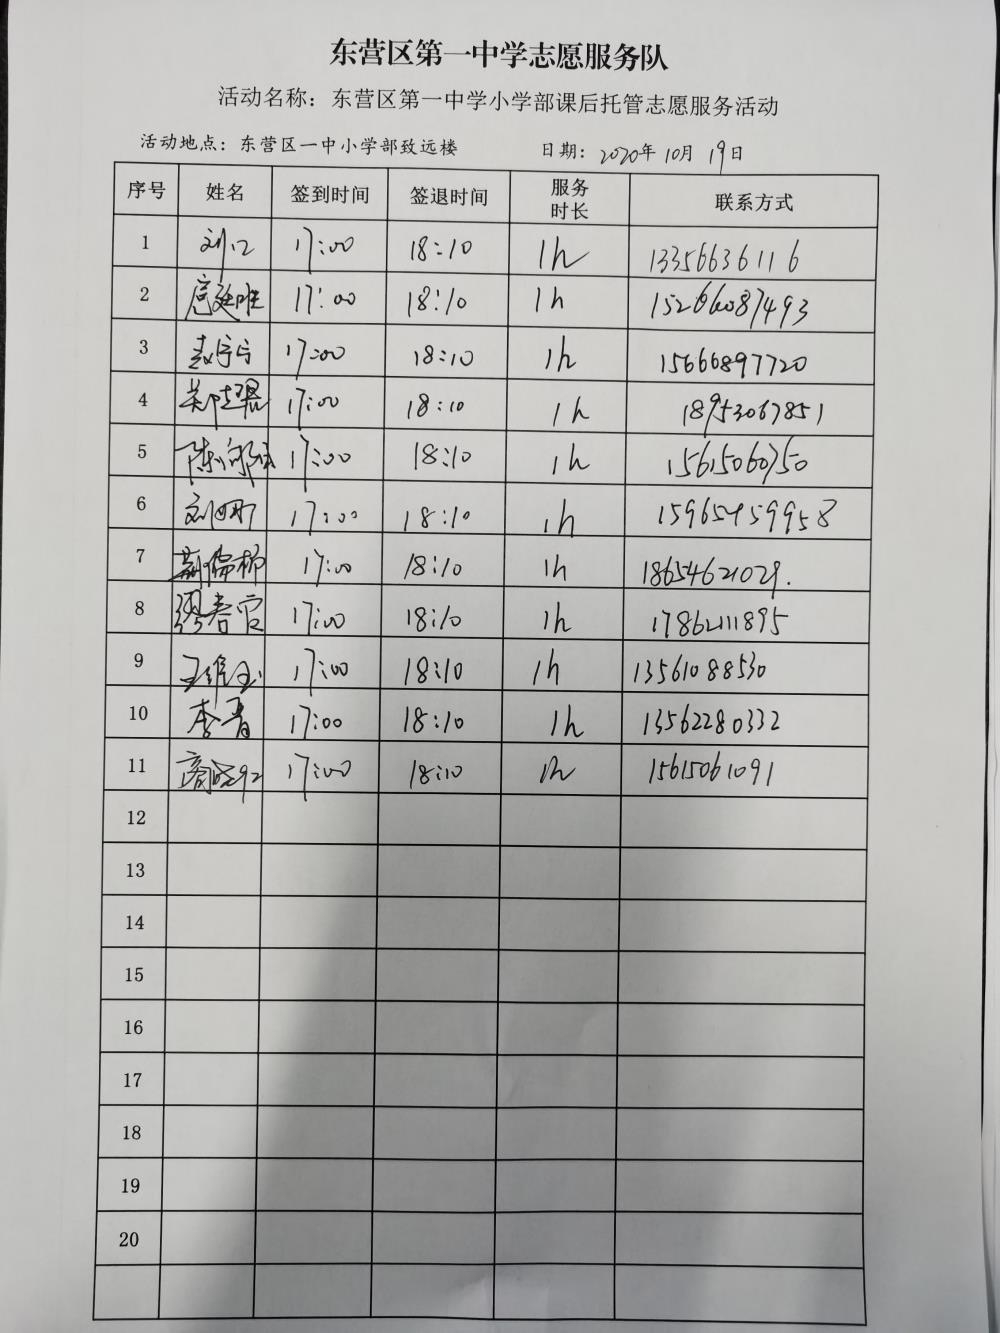 东营区第一中学志愿服务队
活动名称：东营区第一中学小学部课后托管志愿服务活动
活动地点：东营区一中小学部致远楼 日期：2020年10月19日
序号 姓名 签到时间 签退时间 服务时长 联系方式
1 17:00 18:10 1h 13356636116
2 17:00 18:10 1h 15266087493
3 17:00 18:10 1h 15666897720
4 17:00 18:10 1h 18953067851
5 17:00 18:10 1h 15615060750
6 17:00 18:10 1h
7 17:00 18:10 1h 18654621029.
8 17:00 18:10 1h 17862111895
9 17:00 18:10 1h 13561088530
10 李青 17:00 18:10 1h 13562280332
11 17:00 18:10 1h 15615061091
12
13
14
15
16
17
18
19
20